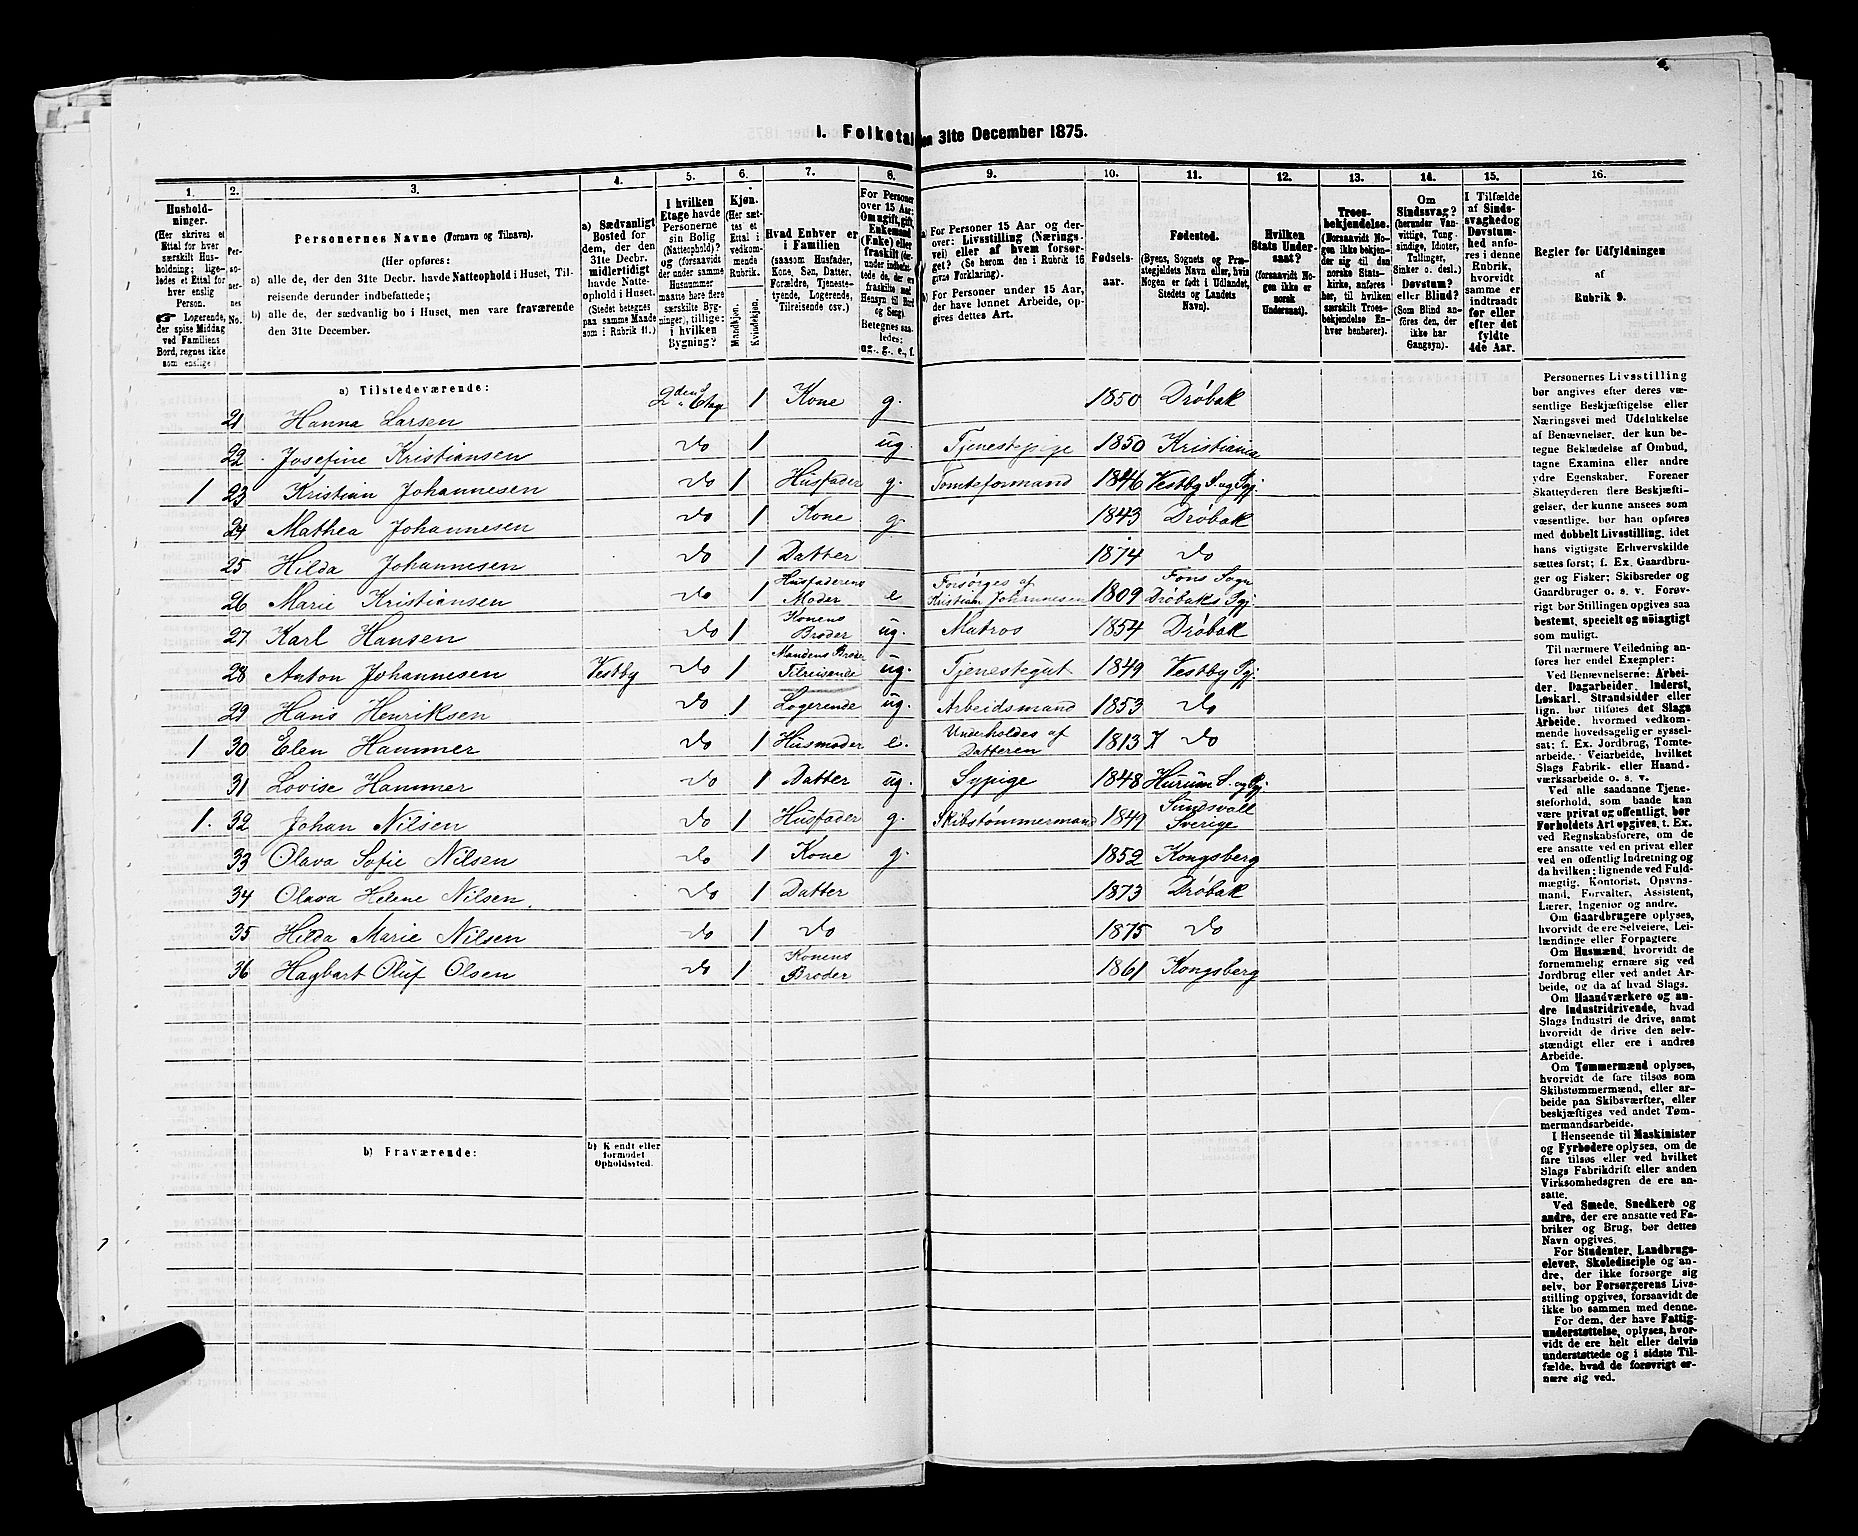 I. Folketal
en 31te December 1875.
1. 2. 3. 4. 5. 6. 7. 8. 9. 10. 11. 12. 13. 14. 15. 16.
Hushold-
ninger.
(Her skrives et
Ettal for hver
særskilt Hus-
holdning; lige-
ledes et Ettal for
hver enslig
Person.
☞ Logerende,
der spise Middag
ved Familiens
Bord, regnes ikke
som enslige)
Per-
soner-
nes
No.
Personernes Navne (Fornavn og Tilnavn).
(Her opføres:
a) alle de, der den 31te Decbr. havde Natteophold i Huset, Til-
reisende derunder indbefattede;
b) alle de, der sædvanlig bo i Huset, men vare fraværende
den 31te December.
a) Sædvanligt
Bosted for
dem, der den
31te Decbr.
midlertidigt
havde Natte-
ophold i Huset.
(Stedet betegnes
paa samme Maade
som i Rubrik 11.)
I hvilken
Etage havde
Personerne
sin Bolig
(Natteophold)?
og (forsaavidt
der under samme
Husnummer
maatte høre flere
særskilte Byg-
ninger), tillige:
i hvilken
Bygning?
Kjøn.
(Her sæt-
tes et
Ettal i
vedkom-
mende
Rubrik.
Mandkjøn.
Kvindekjøn.
Hvad Enhver er
i Familien
(saasom Husfader,
Kone, Søn, Datter,
Forældre, Tjeneste-
tyende, Logerende,
Tilreisende osv.)
For Personer
over 15 Aar:
Om ugift, gift,
Enkemand
(Enke) eller
fraskilt
Betegnes saa-
ledes:
ug., g., e., f.
a) For Personer 15 Aar og der-
over: Livsstilling (Nærings-
vei) eller af hvem forsør-
get? (Se herom den i Rubrik 16
givne Forklaring).
b) For Personer under 15 Aar,
der have lønnet Arbeide, op-
gives dettes Art.
Fødsels-
aar.
Fødested.
(Byens, Sognets og Præ-
stegjeldets Navn eller, hvis
Nogen er født i Udlandet,
Stedets og Landets
Navn).
Hvilken
Stats Under-
saat?
(forsaavidt No-
gen ikke er
norsk
Undersaat).
Troes-
bekjendelse.
(Forsaavidt No-
gen ikke bekjen-
der sig til den
norske Stats-
kirke, anføres
her, til hvilken
særskilt Troes-
bekjendelse En-
hver henhører).
Om
Sindssvag?
(herunder Van-
vittige, Tung-
sindige, Idioter,
Tullinger,
Sinker o. desl.)
Døvstum?
eller Blind?
(Som Blind an-
føres den, der
ikke har
Gangsyn).
I Tilfælde
af Sinds-
svaghed og
Døvstum-
hed anfø-
res i denne
Rubrik,
hvorvidt
samme er
indtraadt
før eller
efter det
fyldte
4de Aar.
Regler for Udfyldningen
af
Rubrik 9.
a) Tilstedeværende:
21 Hanna Larsen 2den Etage 1 Kone g. 1850 Drøbak
22 Josefine Kristiansen do 1 ug. Tjenestepige 1850 Kristiania
1 23 Kristian Johannesen do 1 Husfader g. Tomteformand 1846 Vestby S. og Pgj.
24 Mathea Johannesen do 1 Kone g. 1843 Drøbak
25 Hilda Johannesen do 1 Datter 1874 do
26 Marie Kristiansen do 1 Husfaderens Moder e Forsørges af Kristian Johannesen 1809 Fons Sogn Drøbaks Pgj.
27 Karl Hansen do 1 Konens Broder ug. Matros 1854 Drøbak
28 Anton Johannesen Vestby do 1 Mandens Broder Tilreisende ug. Tjenestegut 1849 Vestby Pgj.
29 Hans Henriksen do 1 Logerende ug. Arbeidsmand 1853 do
1 30 Elen Hammer do 1 Husmoder e. Underholdes af Datteren 1813 X do
31 Lovise Hammer do 1 Datter ug. Sypige 1848 Hurum S. og Pgj.
1. 32 Johan Nilsen do 1 Husfader g. Skibstømmermand 1849 Sundsvall Sverige
33 Olava Sofie Nilsen do 1 Kone g. 1852 Kongsberg
34 Olava Helene Nilsen. do 1 Datter 1873 Drøbak
35 Hilda Marie Nilsen do 1 do 1875 do
36 Hagbart Oluf Olsen do 1 Konens Broder 1861 Kongsberg
b) Fraværende:
b) Kjendt eller
formodet
Opholdssted.
Personernes Livsstilling
bør angives efter deres væ-
sentlige Beskjæftigelse eller
Næringsvei med Udelukkelse
af Benævnelser, der kun be-
tegne Beklædelse af Ombud,
tagne Examina eller andre
ydre Egenskaber. Forener
Skatteyderen flere Beskjæfti-
gelser, der kunne ansees som
væsentlige, bør han opføres
med dobbelt Livsstilling, idet
hans vigtigste Erhvervskilde
sættes først; f. Ex. Gaardbru-
ger og Fisker; Skibsreder og
Gaardbruger o. s. v. Forøv-
rigt bør Stillingen opgives saa
bestemt, specielt og nøiagtigt
som muligt.
Til nærmere Veiledning an-
føres her endel Exempler:
Ved Benævnelserne: Arbei-
der, Dagarbeider, Inderst,
Løskarl, Strandsidder eller
lign. bør tilføies det Slags
Arbeide, hvormed vedkom-
mende hovedsagelig er syssel-
sat; f. Ex. Jordbrug, Tomte-
arbeide, Veiarbeide, hvilket
Slags Fabrik- eller Haand-
værksarbeide o. s. v.
Ved alle saadanne Tjene-
steforhold, som baade kan
være privat og offentligt, bør
Forholdets Art opgives, t. Ex.
ved Regnskabsførere, om de
ere ansatte ved en privat eller
ved en offentlig Indretning og
da hvilken; lignende ved Fuld-
mægtig, Kontorist, Opsyns-
mand, Forvalter, Assistent,
Lærer, Ingeniør og andre.
Om Gaardbrugere oplyses,
hvorvidt de ere Selveiere, Lei-
lændinge eller Forpagtere.
Om Husmænd, hvorvidt de
fornemmelig ernære sig ved
Jordbrug eller ved andet Ar-
beide, og da af hvad Slags.
Om Haandværkere og an-
dre Industridrivende, hvad
Slags Industri de drive, samt
hvorvidt de drive den selv-
stændigt eller ere i andres
Arbeide.
Om Tømmermænd oplyses,
hvorvidt de fare tilsøs som
Skibstømmermænd, eller ar-
beide paa Skibsværfter, eller
beskjæftiges ved andet Tøm-
mermandsarbeide.
I Henseende til Maskinister
og Fyrbødere oplyses, om de
fare tilsøs eller ved hvilket
Slags Fabrikdrift eller anden
Virksomhedsgren de ere an-
satte.
Ved Smede, Snedkere og
andre, der ere ansatte ved Fa-
briker og Brug, bør dettes
Navn opgives.
For Studenter, Landbrugs-
elever, Skoledisciple og an-
dre, der ikke forsørge sig
selv, bør Forsørgerens Livs-
stilling opgives, forsaavidt de
ikke bo sammen med denne.
For dem, der have Fattig-
understøttelse, oplyses, hvor-
vidt de ere helt eller delvis
understøttede og i sidste Til-
fælde, hvad de forøvrigt er-
nære sig ved.